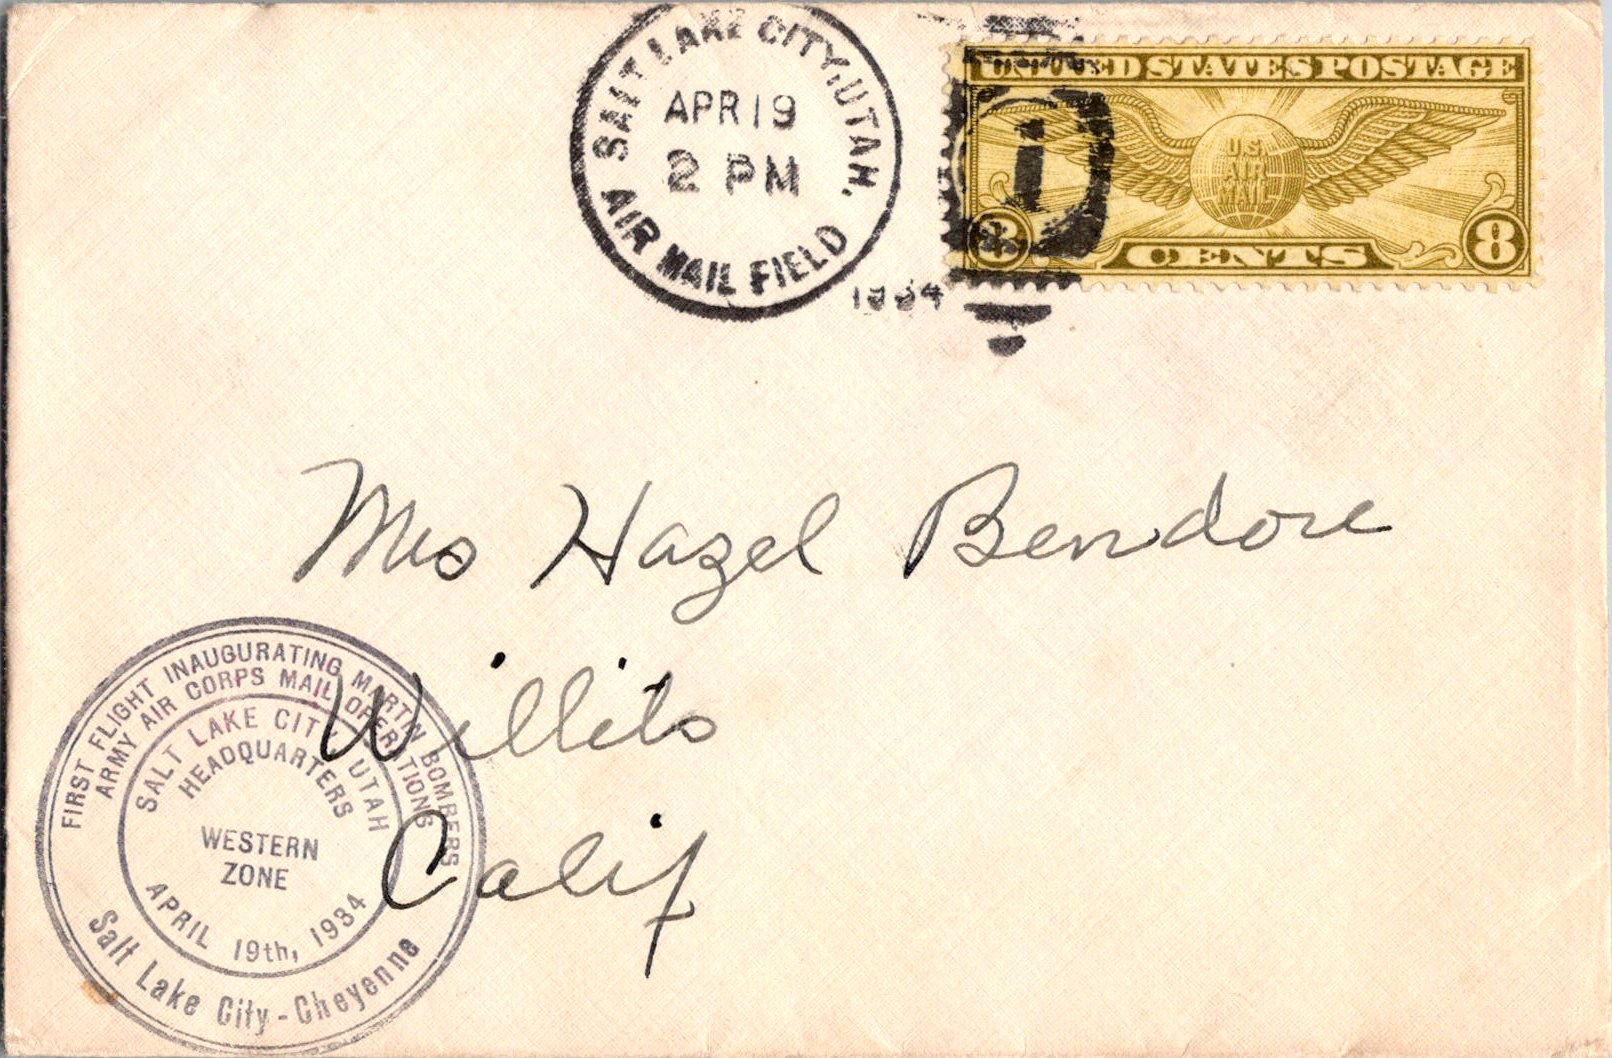 SALT LAKE CITY, UTAH.
APR 19
2 PM
AIR MAIL FIELD
1934
1
UNITED STATES POSTAGE
U.S.
AIR
MAIL
8 CENTS 8
Mrs Hazel Bendore
Willits
Calif
FIRST FLIGHT INAUGURATING MARTIN BOMBERS
ARMY AIR CORPS MAIL OPERATIONS
SALT LAKE CITY, UTAH
HEADQUARTERS
WESTERN
ZONE
APRIL 19th, 1934
Salt Lake City - Cheyenne